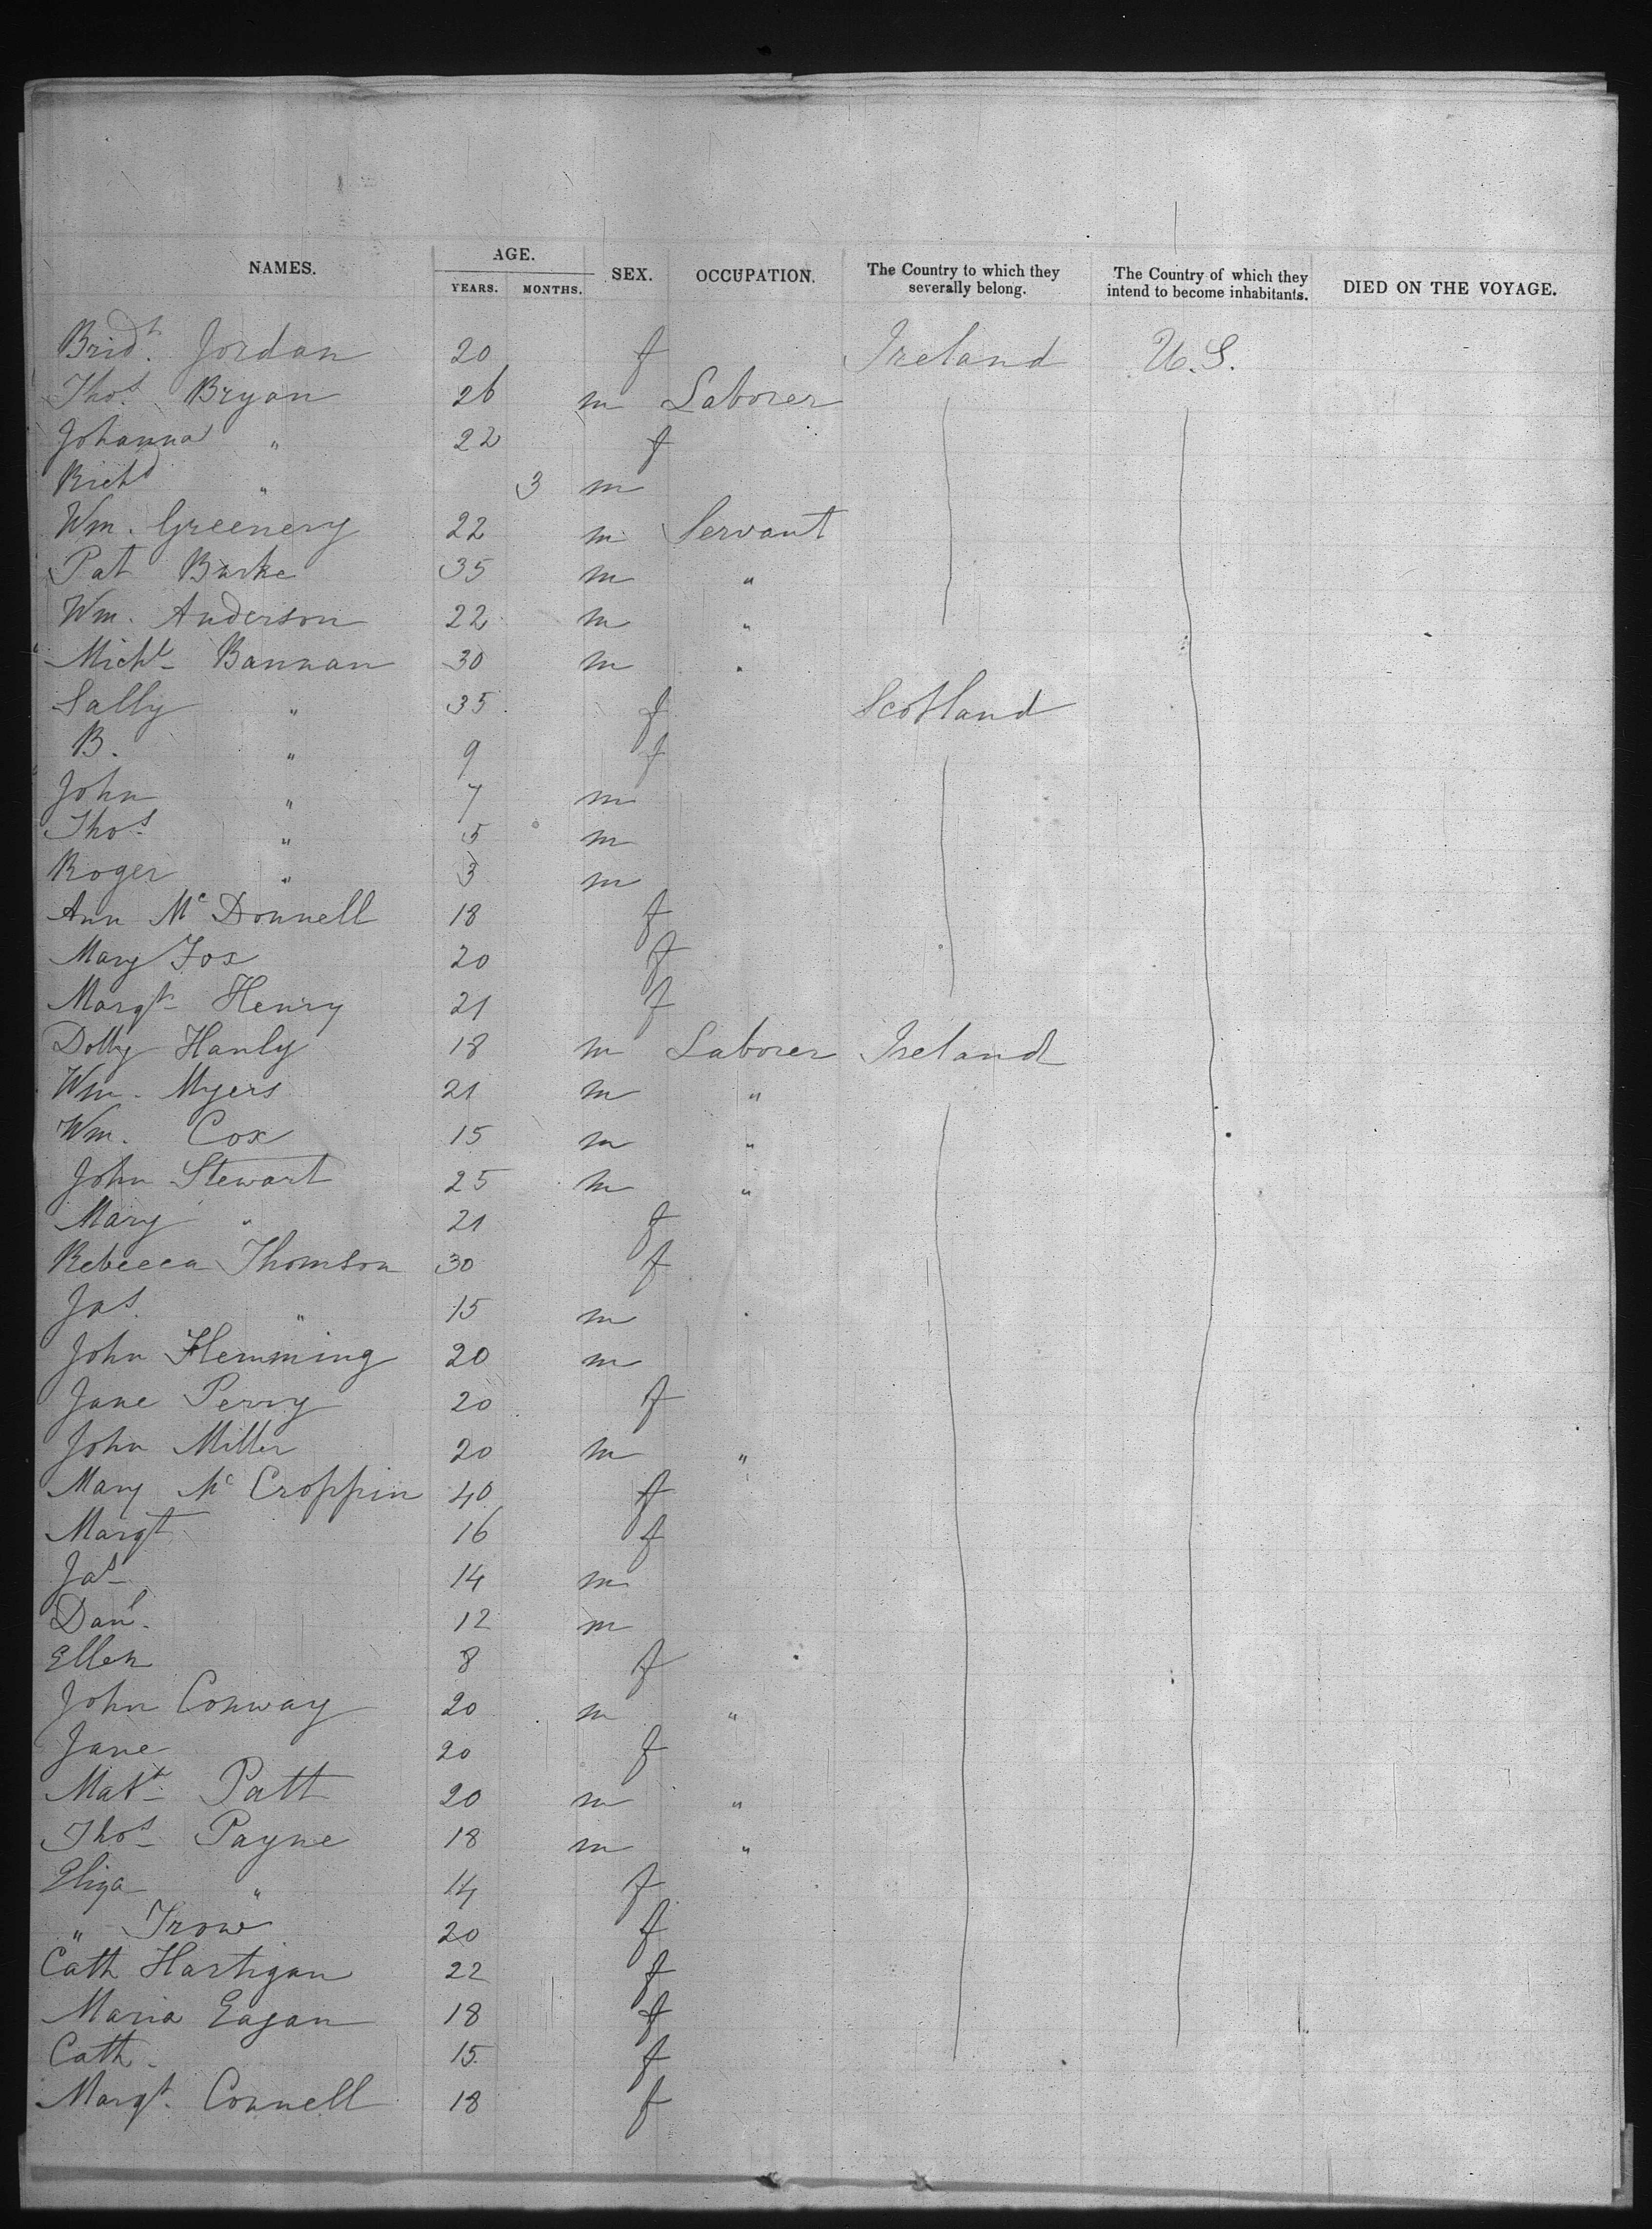 NAMES. AGE. SEX. OCCUPATION. The Country to which they severally belong. The Country of which they intend to become inhabitants. DIED ON THE VOYAGE.
YEARS. MONTHS.
Bridt. Jordan 20 f Ireland U.S.
Thos. Bryan 26 m Laborer
Johanna " 22 f
Richd " 3 m
Wm. Greenery 22 m Servant
Pat Burke 35 m "
Wm. Anderson 22 m "
Michl. Bannan 30 m "
Sally " 35 f Scotland
B. " 9 f
John " 7 m
Thos. " 5 m
Roger " 3 m
Ann McDonnell 18 f
Mary Fox 20 f
Margt. Henry 21 f
Dolly Hanly 18 m Laborer Ireland
Wm. Myers 21 m "
Wm. Cox 15 m "
John Stewart 25 m "
Mary " 21 f
Rebecca Thomson 30 f
Jas. " 15 m
John Flemming 20 m
Jane Perry 20 f
John Miller 20 m "
Mary Mc Croppin 40 f
Margt 16 f
Jas. 14 m
Danl. 12 m
Ellen 8 f
John Conway 20 m "
Jane 20 f
Matt. Patt 20 m "
Thos. Payne 18 m "
Eliza " 14 f
" Trow 20 f
Cath Hartigan 22 f
Maria Eagan 18 f
Cath. 15 f
Margt. Connell 18 f